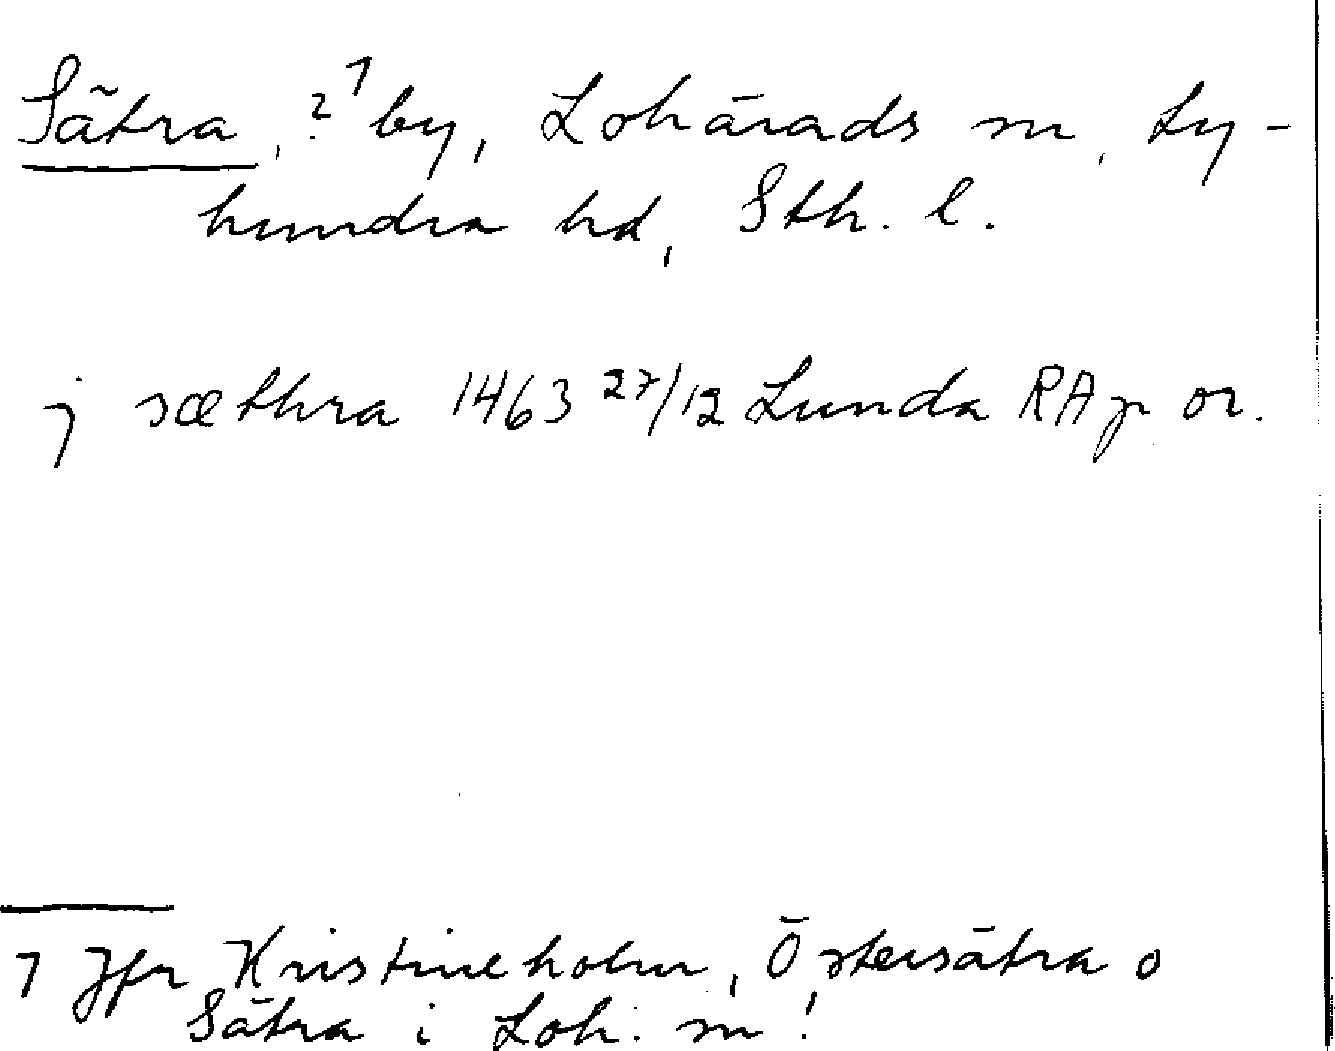 Sätra, ?¹ by, Lohärads sn, Ly-
hundra hd, Sth. l.
j sæthra 1463 27/12 Lunda RAp or.
1 Jfr Kristineholm, Östersätra o
Sätra i Loh. sn!